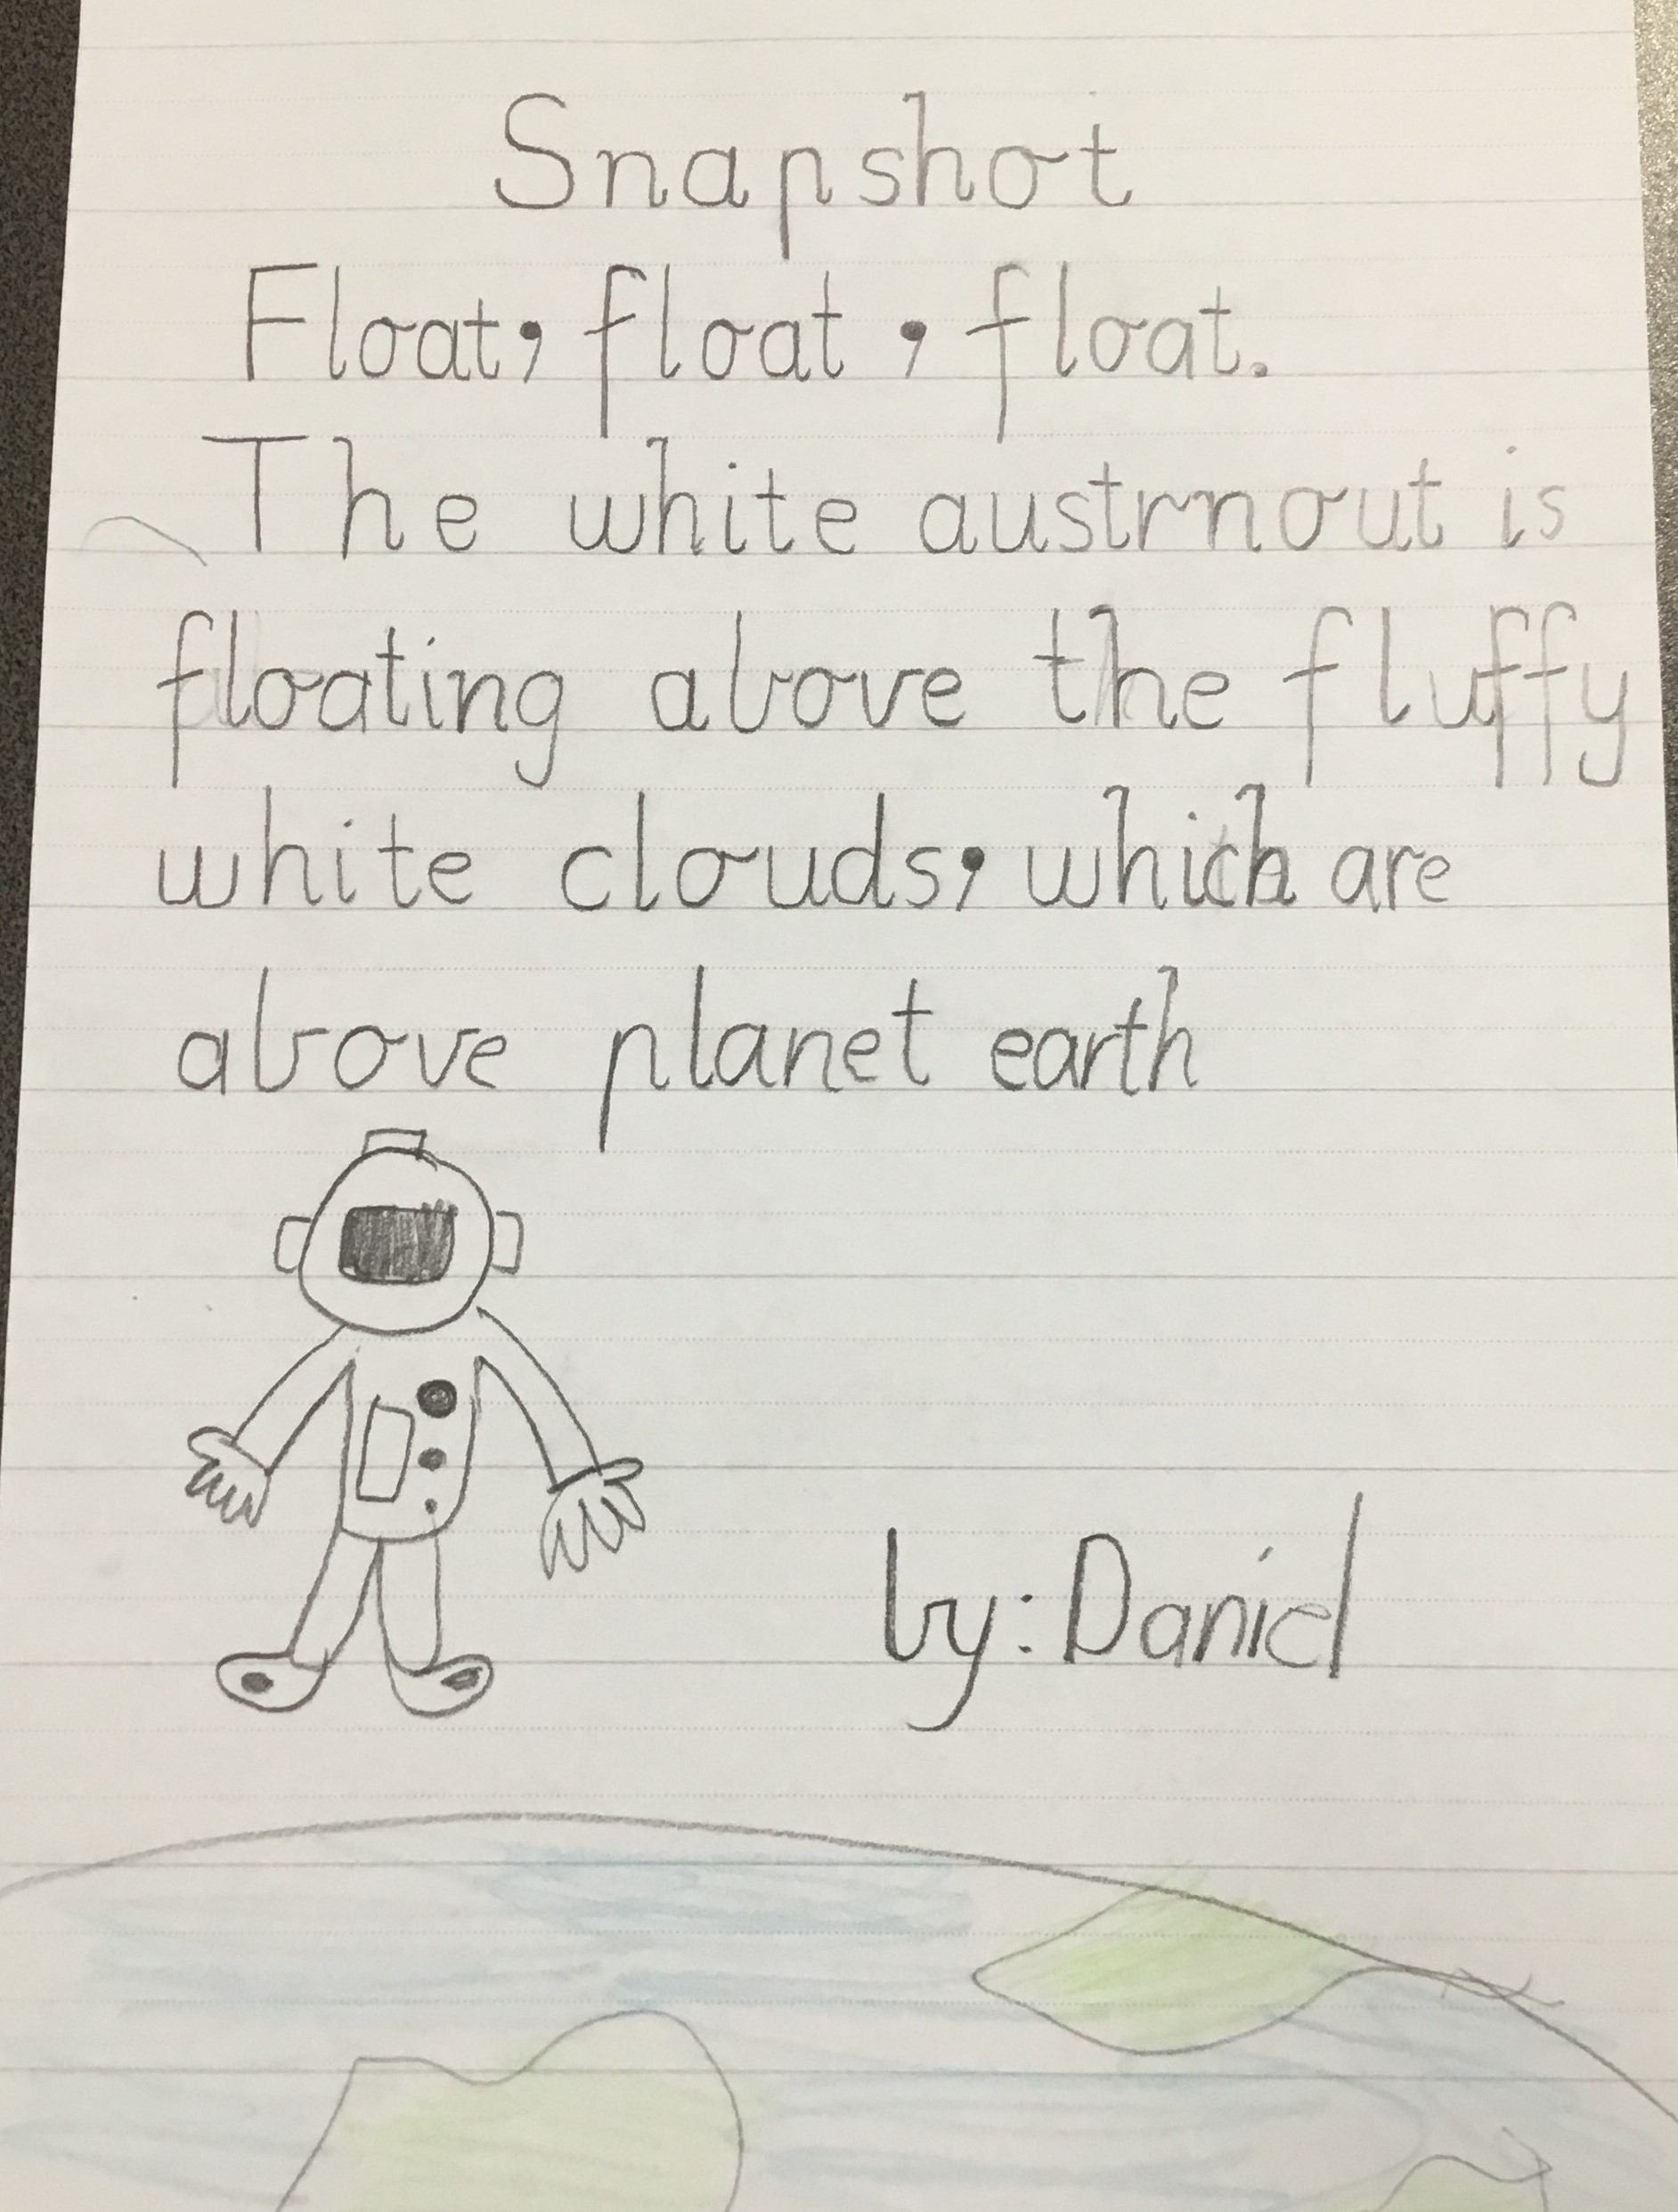 Snapshot
Float, float , float.
The white austrnout is
floating above the fluffy
white clouds, which are
above planet earth
by: Daniel